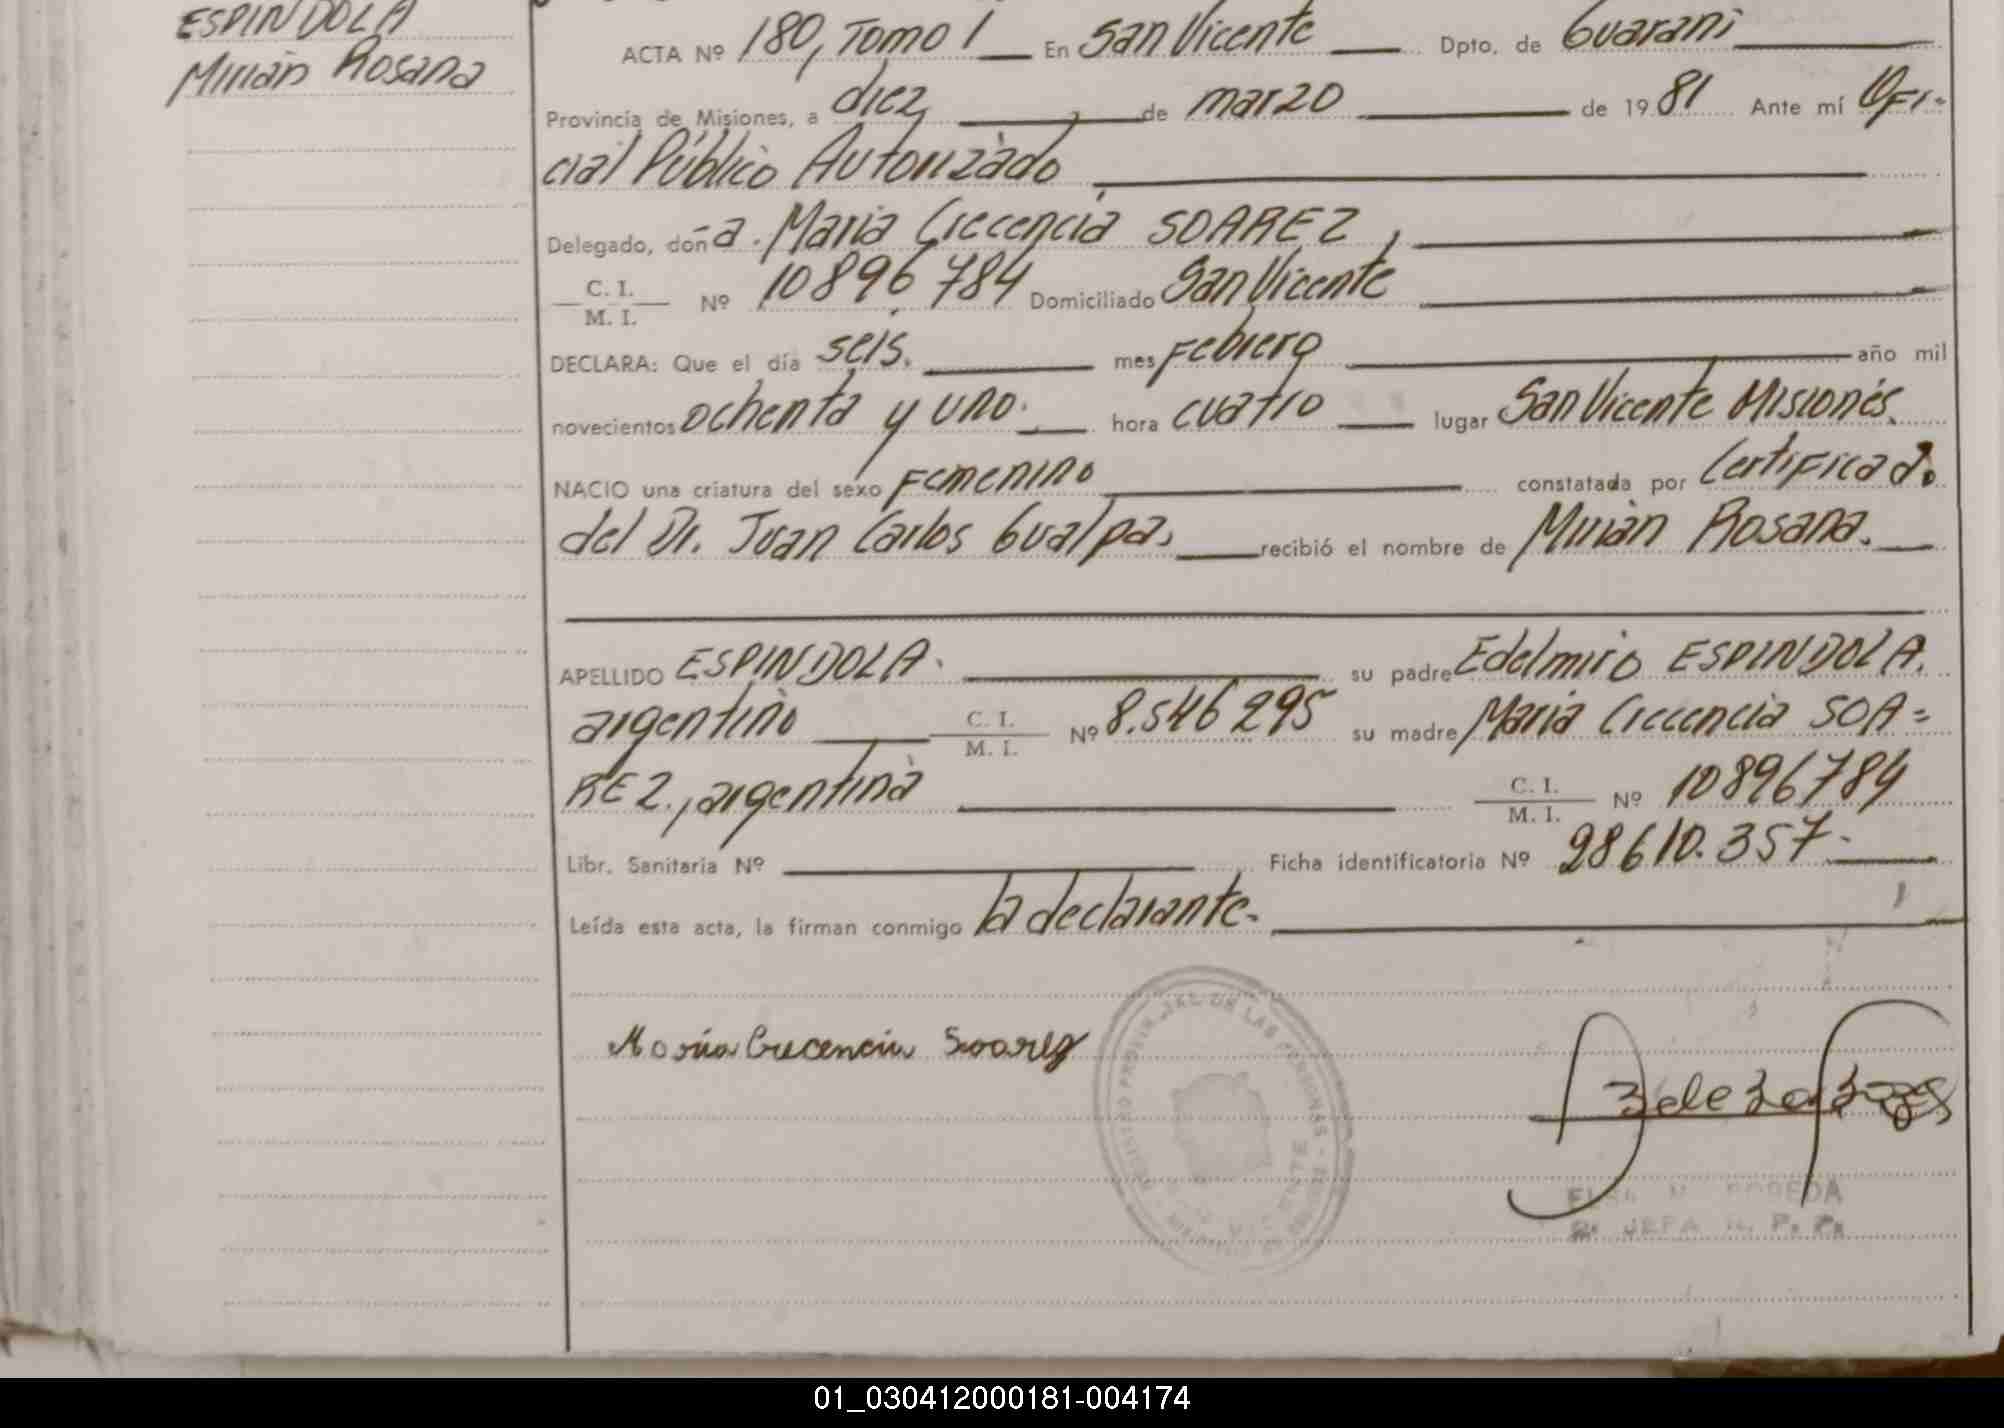 ESPINDOLA
Mirián Rosana
ACTA Nº 180, Tomo 1 En San Vicente Dpto. de Guaraní
Provincia de Misiones, a diez de marzo de 1981 Ante mí Ofi-
cial Público Autorizado
Delegado, doña. María Crecencia SOAREZ,
C. I. / M. I. Nº 10896784 Domiciliado San Vicente
DECLARA: Que el día seis. mes Febrero año mil
novecientos ochenta y uno. hora cuatro lugar San Vicente Misiones
NACIO una criatura del sexo Femenino constatada por Certificado
del Dr. Juan Carlos Gualpas, recibió el nombre de Mirián Rosana.
APELLIDO ESPINDOLA. su padre Edelmiro ESPINDOLA.
argentino C. I. / M. I. Nº 8.546295 su madre María Crecencia SOA=
REZ., argentina C. I. / M. I. Nº 10896784
Libr. Sanitaria Nº Ficha identificatoria Nº 28610.357.-
Leída esta acta, la firman conmigo la declarante.
María Crecencia Soarez
JEFA R. P. P.
01_030412000181-004174